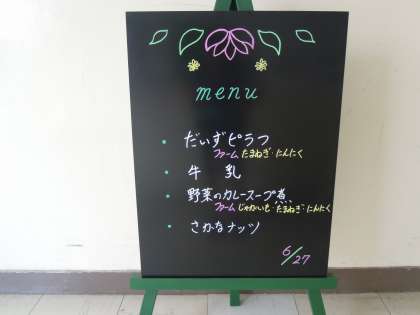 menu
・ だいずピラフ
ファーム たまねぎ・にんにく
・ 牛 乳
・ 野菜のカレースープ煮
ファーム じゃがいも・たまねぎ・にんにく
・ さかなナッツ
6/27